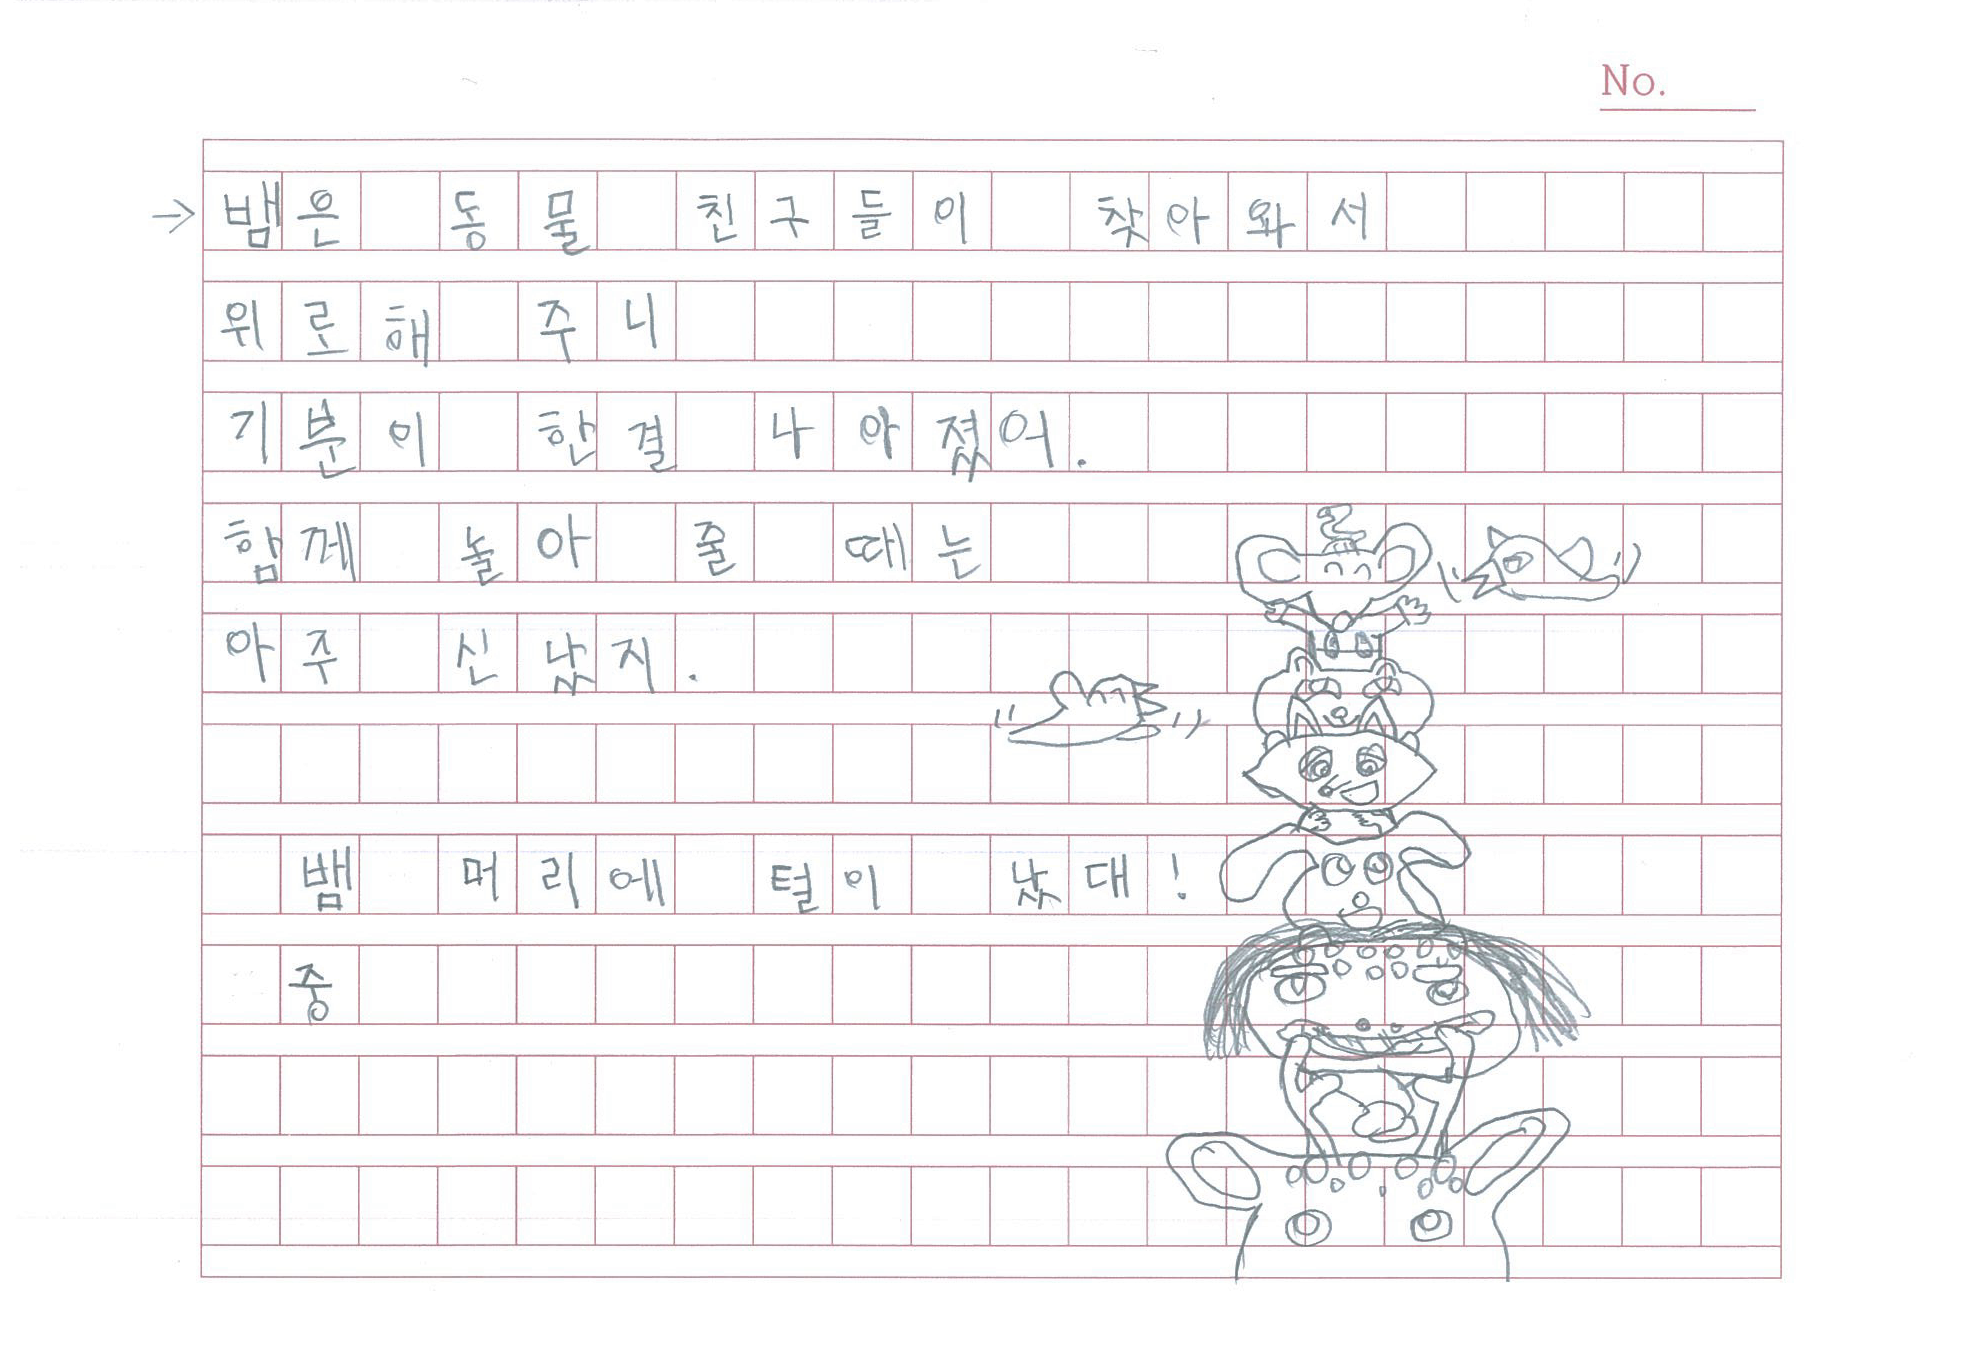 No.
→ 뱀은 동물 친구들이 찾아와서
위로해 주니
기분이 한결 나아졌어.
함께 놀아 줄 때는
아주 신났지.
뱀 머리에 털이 났대!
중